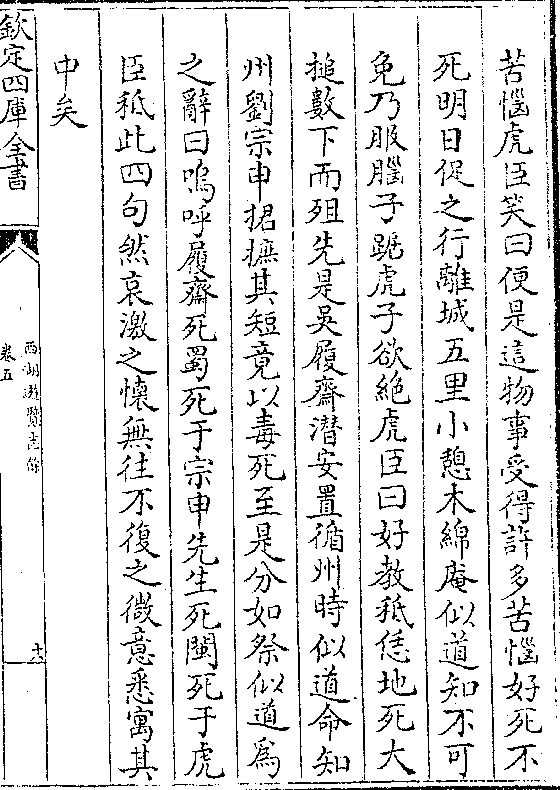 苦惱虎臣笑曰便是這物事受得許多苦惱好死不
死明日促之行離城五里小憩木綿庵似道知不可
免乃服腦子踞虎子欲絶虎臣曰好教秪恁地死大
搥數下而殂先是吳履齋潛安置循州時似道命知
州劉宗申捃摭其短竟以毒死至是分如祭似道爲
之辭曰嗚呼履齋死蜀死于宗申先生死閩死于虎
臣秪此四句然哀激之懷無往不復之微意悉寓其
中矣
欽定四庫全書
西湖遊覽志餘
卷五
十六